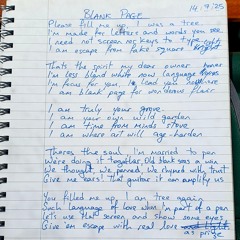 BLANK PAGE
14/9/25
Please fill me up, I was a tree.
I'm made for letters and words you see
I need not screen or keys to type
I am escape from fake square
Thats the spirit my dear owner
I'm less blank white now language
I'm focus for you, & lead you
I am blank page for wonderous flair
I am truly your
I am your own wild garden
I am time from minds
I am where art will age-harden
Theres the soul, I'm married to pen
We're doing it together, Old blank was a
We thought, we penned, we rhymed with trust
Give me bars! That guitar it can amplify us
You filled me up, I am tree again
Each language of love when I'm part of a pen
Lets use that screen and show some eyes
Give em escape with real love
as prize